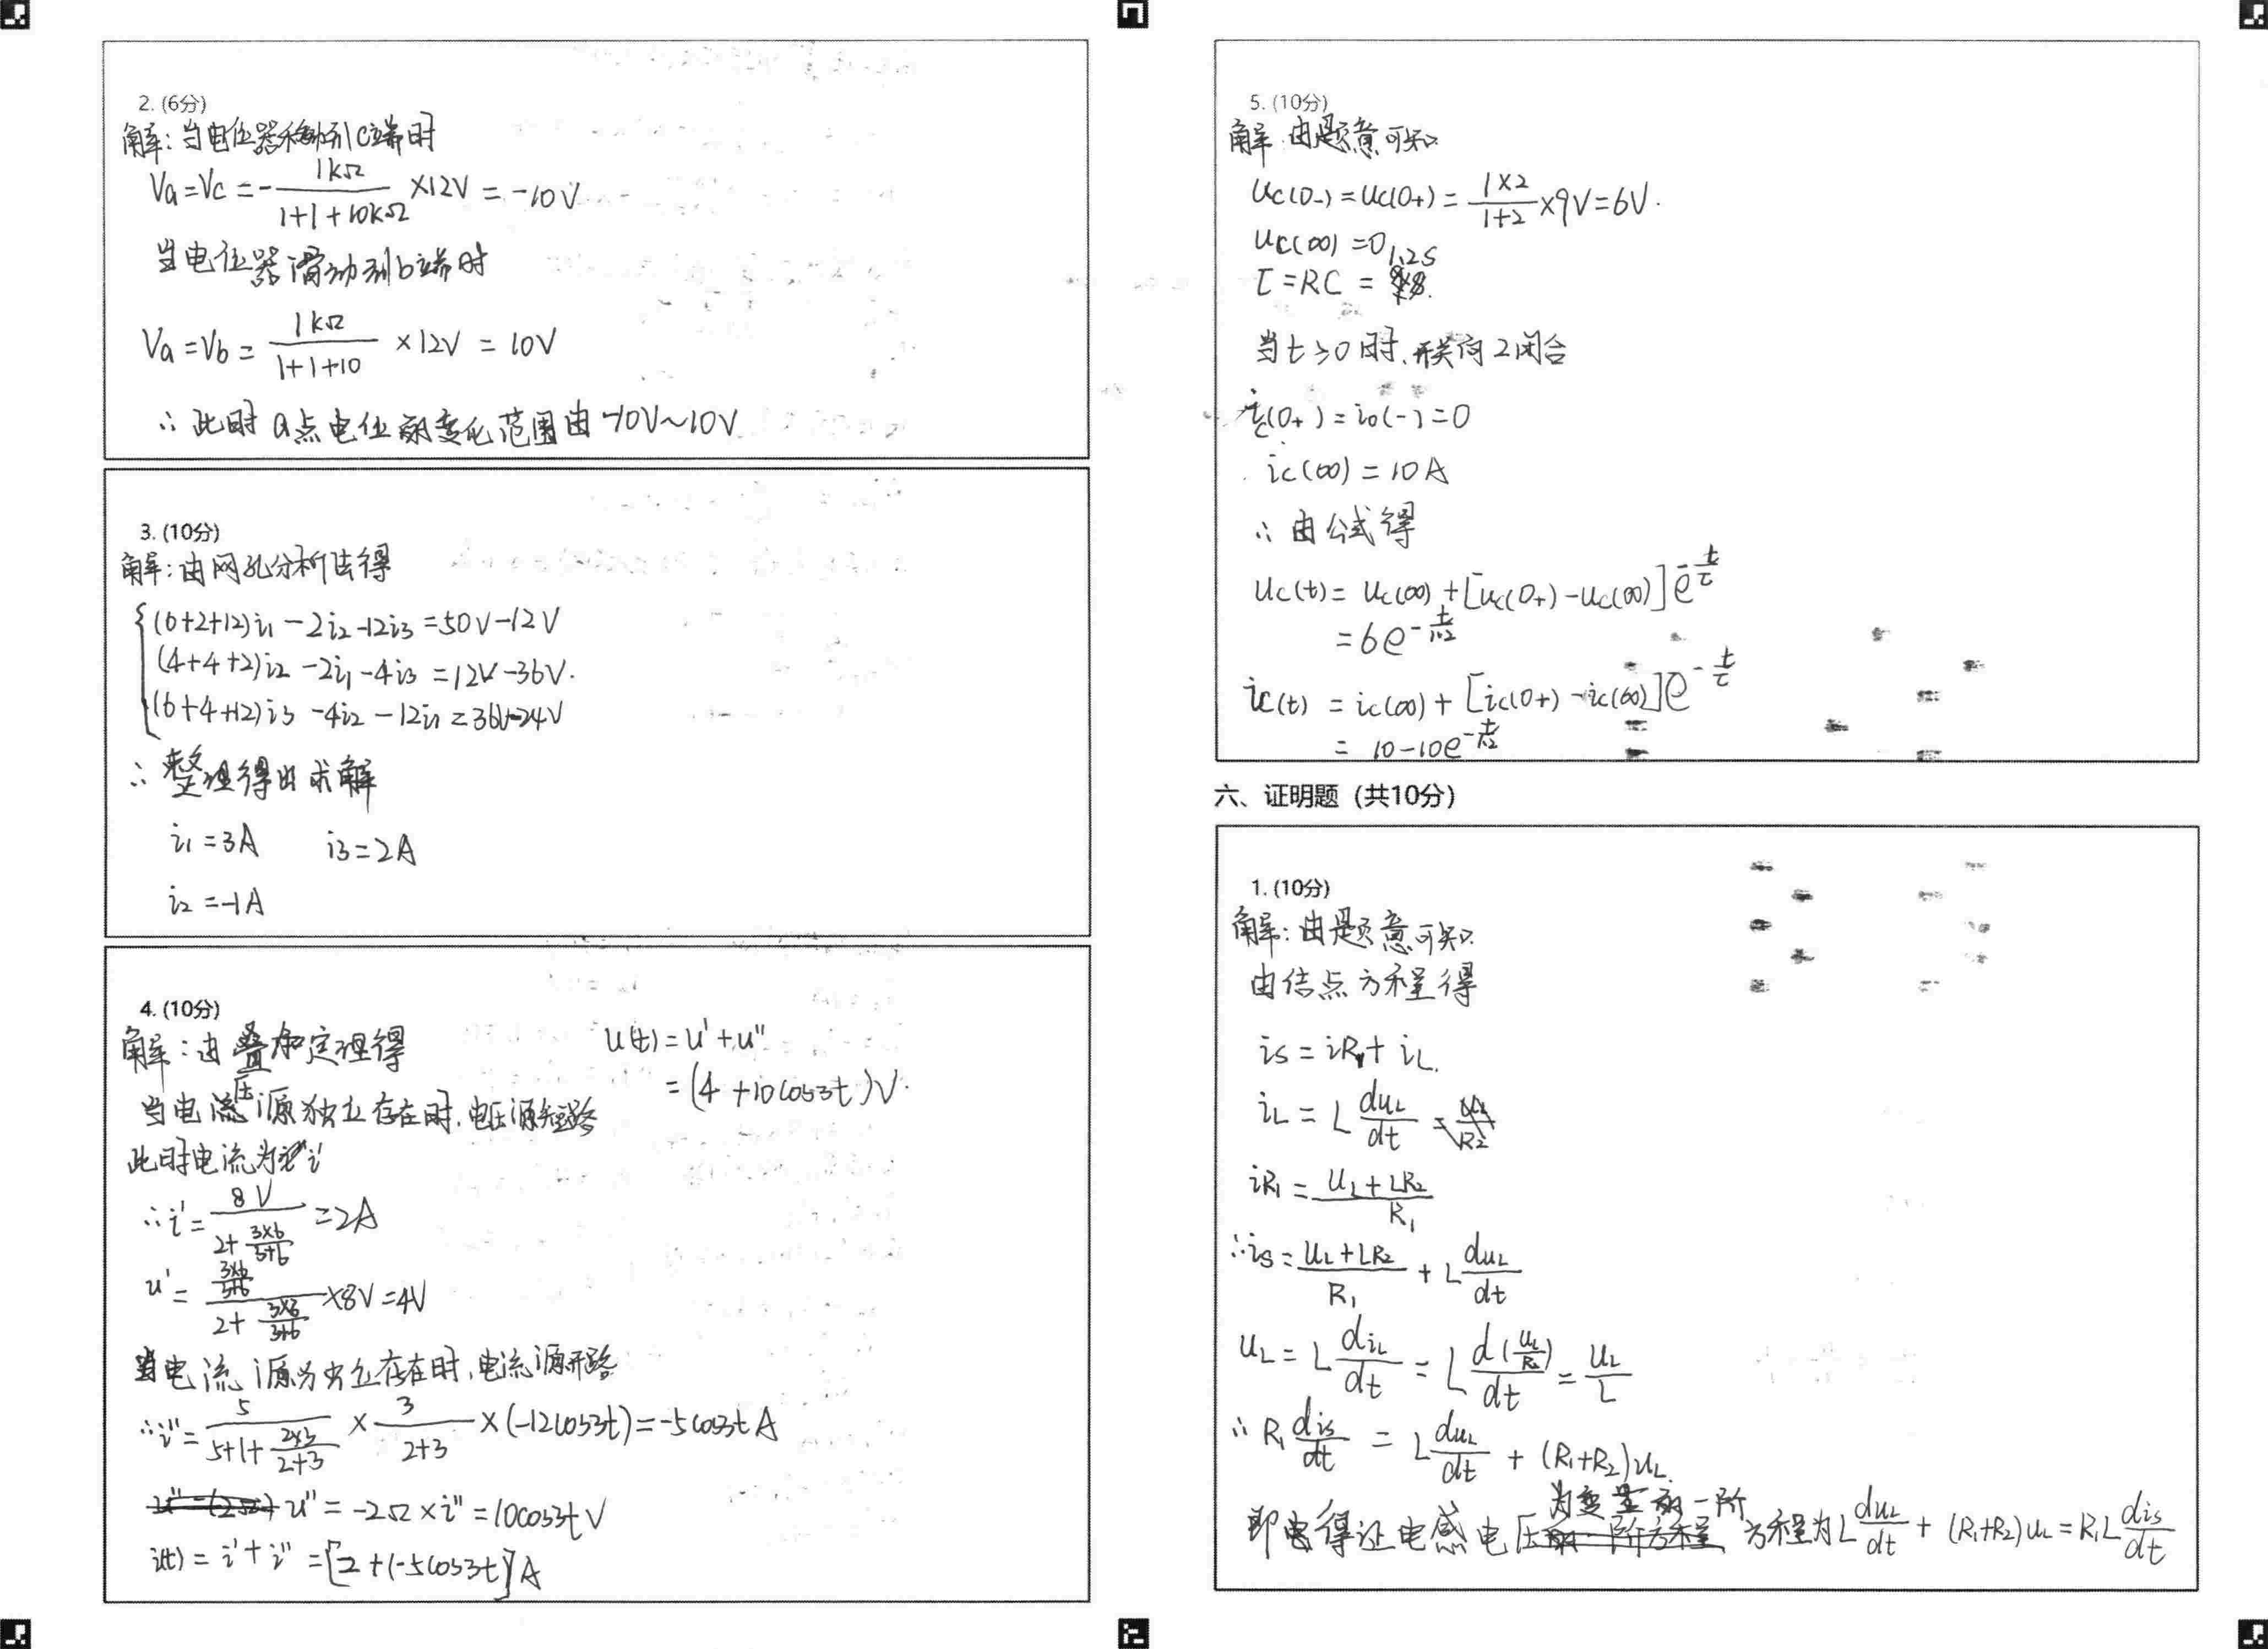 2. (6分)
解:当电位器移动到C端时
Va=Vc=-\frac{1kΩ}{1+1+10kΩ}×12V=-10V
当电位器滑动到b端时
Va=Vb=\frac{1kΩ}{1+1+10}×12V=10V
∴此时a点电位的变化范围由-10V~10V
3. (10分)
解:由网孔分析法得
(6+2+12)i₁-2i₂-12i₃=50V-12V
(4+4+2)i₂-2i₁-4i₃=12V-36V.
(6+4+12)i₃-4i₂-12i₁=36V-24V
∴整理得出求解
i₁=3A i₃=2A
i₂=-1A
4. (10分)
解:由叠加定理得
当电压源独立存在时,电压源短路
此时电流为i'
∴i'=\frac{8V}{2+\frac{3×6}{3+6}}=2A
u'=\frac{\frac{3×6}{3+6}}{2+\frac{3×6}{3+6}}×8V=4V
当电流源为独立存在时,电流源开路
∴i''=\frac{5}{5+1+\frac{2×3}{2+3}}×\frac{3}{2+3}×(-12cos3t)=-5cos3tA
u''=-2Ω×i''=10cos3tV
i(t)=i'+i''=[2+(-5cos3t]A
u(t)=u'+u''
=(4+10cos3t)V.
5. (10分)
解:由题意可知
uc(0-)=uc(0+)=\frac{1×2}{1+2}×9V=6V.
uc(∞)=0
τ=RC=1.2S
当t>0时,开关向2闭合
ic(0+)=i0(-)=0
ic(∞)=10A
∴由公式得
uc(t)=uc(∞)+[uc(0+)-uc(∞)]e^{-\frac{t}{τ}}
=6e^{-\frac{t}{1.2}}
ic(t)=ic(∞)+[ic(0+)-ic(∞)]e^{-\frac{t}{τ}}
=10-10e^{-\frac{t}{1.2}}
六、证明题(共10分)
1. (10分)
解:由题意可知
由结点方程得
is=iR₁+iL.
iL=L\frac{duL}{dt}
iR₁=\frac{uL+LR₂}{R₁}
∴is=\frac{uL+LR₂}{R₁}+L\frac{duL}{dt}
uL=L\frac{diL}{dt}=L\frac{d(\frac{uL}{R₂})}{dt}=\frac{uL}{L}
∴R₁\frac{dis}{dt}=L\frac{duL}{dt}+(R₁+R₂)uL.
即得证电感电压为变量的一阶方程为L\frac{duL}{dt}+(R₁+R₂)uL=R₁L\frac{dis}{dt}